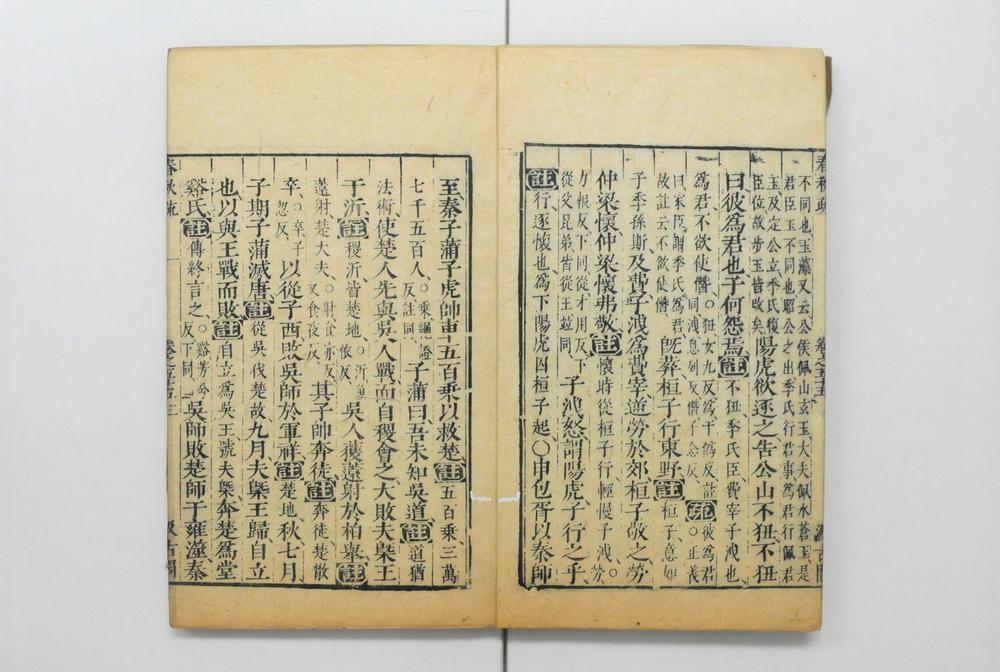 春秋疏 卷之五十五 汲古閣
不同也玉藻又云公侯佩山玄玉大夫佩水蒼玉是
君臣玉不同也昭公之出季氏行君事爲君行佩君
玉及定公立季氏復
臣位故步玉皆改矣
陽虎欲逐之告公山不狃不狃
曰彼爲君也子何怨焉註不狃季氏臣費宰子洩也
爲君不欲使僭○狃女九反爲于僞反註
同洩息列反僭子念反
疏彼爲君○正義
曰家臣謂季氏爲君
故註云不欲使僭
既葬桓子行東野註桓子意如
子季孫斯及費子洩爲費宰逆勞於郊桓子敬之勞
仲梁懷仲梁懷弗敬註懷時從桓子行輕慢子洩○勞
力報反下同從才用反下
從父昆弟皆從王竝同
子洩怒謂陽虎子行之乎
註行逐懷也爲下陽虎囚桓子起○申包胥以秦師
至秦子蒲子虎帥車五百乘以救楚註五百乘三萬
七千五百人○乘繩證
反註同
子蒲曰吾未知吳道註道猶
法術使楚人先與吳人戰而自稷會之大敗夫㮣王
于沂註稷沂皆楚地○沂魚
依反
吳人獲薳射於柏舉註
薳射楚大夫○射食亦反
又食夜反
其子帥奔徒註奔徒楚散
卒○卒子
忽反
以從子西敗吳師於軍祥註楚地秋七月
子期子蒲滅唐註從吳伐楚故九月夫㮣王歸自立
也以與王戰而敗註自立爲吳王號夫㮣奔楚爲堂
谿氏註傳終言之○谿芳兮
反下同
吳師敗楚師于雍澨秦
春秋疏 卷之五十五 三 汲古閣